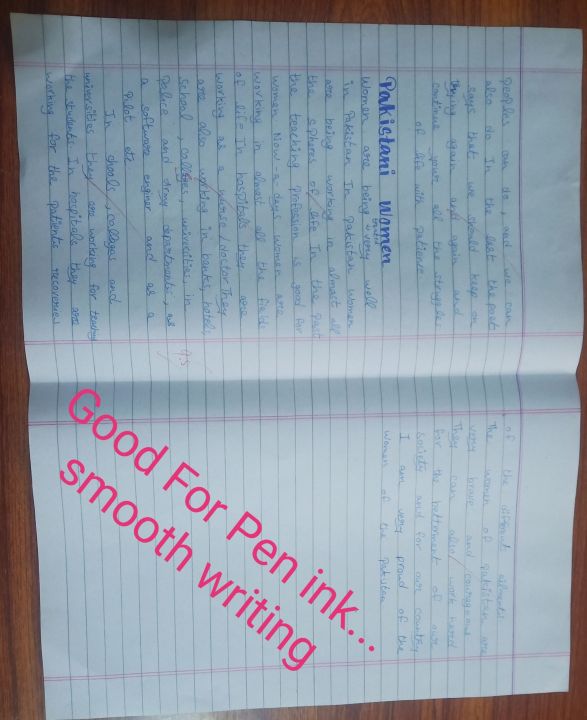 peoples can do, and we can
also do In the last the poet
says that we should keep on
trying again and again and
continue your all the struggles
of life with patience.
Pakistani Women
Women are being very well
in Pakistan In pakistan women
are being working in almost all
the spheres of life In the past
the teaching profession is good for
women Now a-days women are
working in almost all the fields
of life In hospitals they are
working as a nurse/doctor They
are also working in banks, hotels,
school, colleges, universities, in
Police and army departments, as
a software engineer and as a
Pilot etc.
In shools, collages and
universities they are working for
the students In hospitals they are
working for the patients recoveries
of the different ailments
The women of pakistan are
very brave and courageous
They can also work hard
for the betterment of our
society and for our country
I am very proud of the
women of the Pakistan
Good For Pen ink...
smooth writing